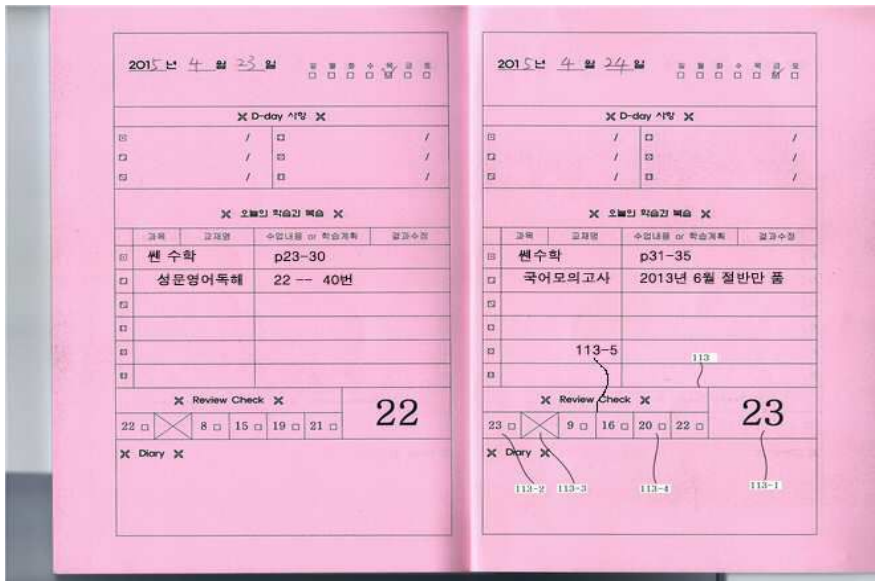 2015년 4월 23일 일 월 화 수 목 금 토
D-day 사항
/ /
/ /
/ /
오늘의 학습과 복습
과목 교재명 수업내용 or 학습계획 결과수정
쎈 수학 p23-30
성문영어독해 22 -- 40번
Review Check
22
22 8 15 19 21
Diary
2015년 4월 24일 일 월 화 수 목 금 토
D-day 사항
/ /
/ /
/ /
오늘의 학습과 복습
과목 교재명 수업내용 or 학습계획 결과수정
쎈수학 p31-35
국어모의고사 2013년 6월 절반만 품
113-5
113
Review Check
23
23 9 16 20 22
Diary
113-2 113-3 113-4 113-1